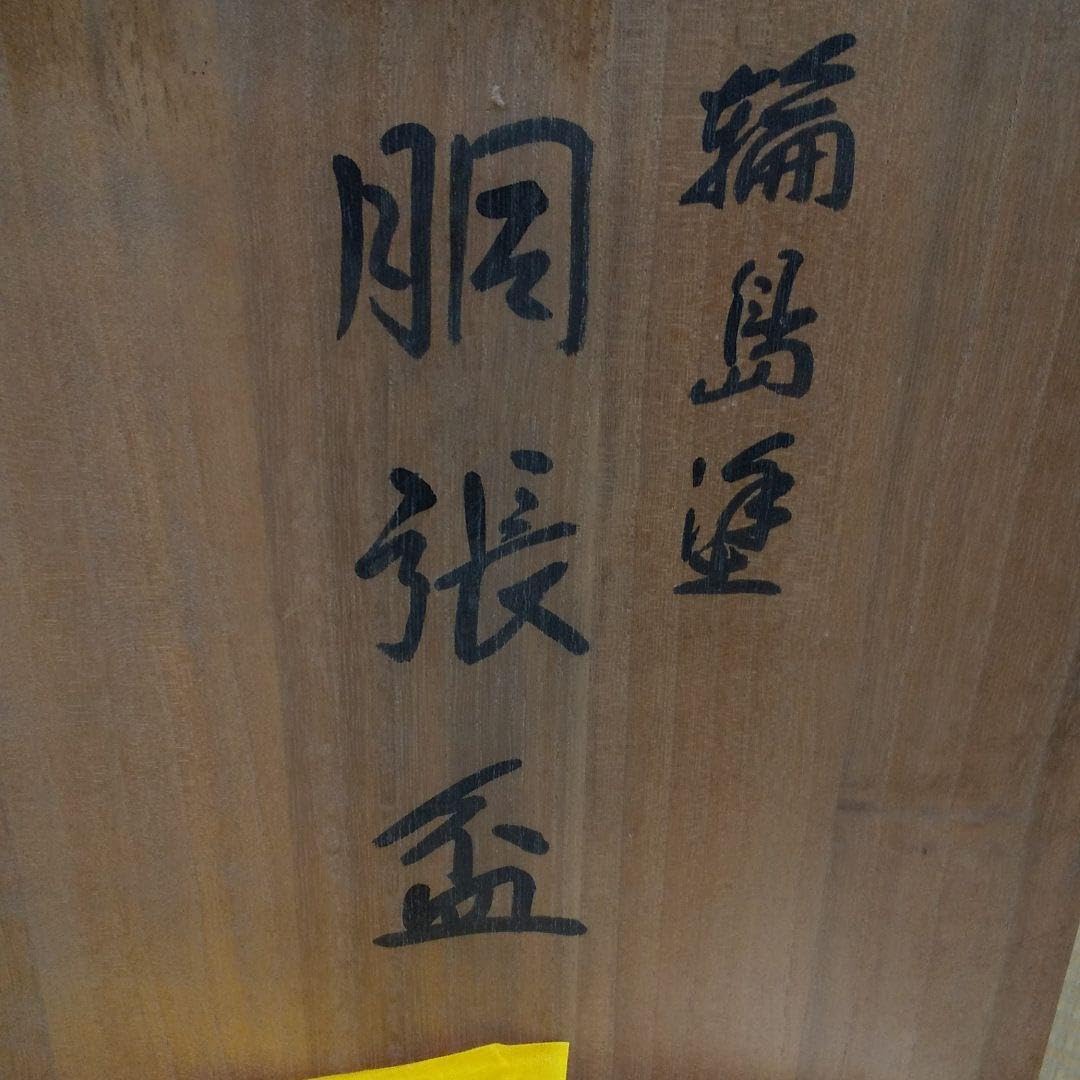 輪島塗
胴張盃